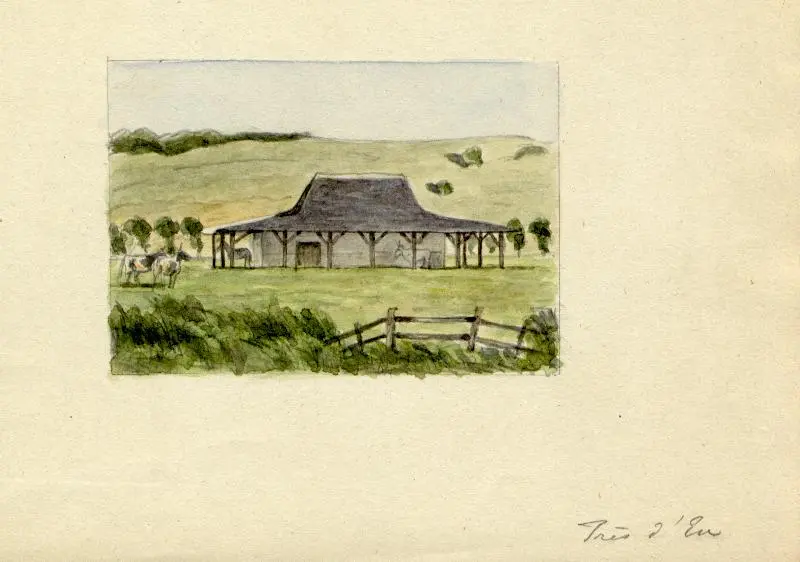 Près d'Eu